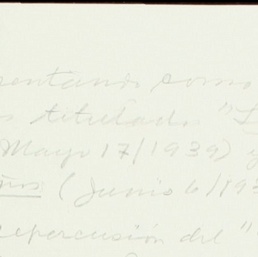 sentando como
titulado "
Mayo 17/1939) y
ños (Junio 6/193
repercusión del "